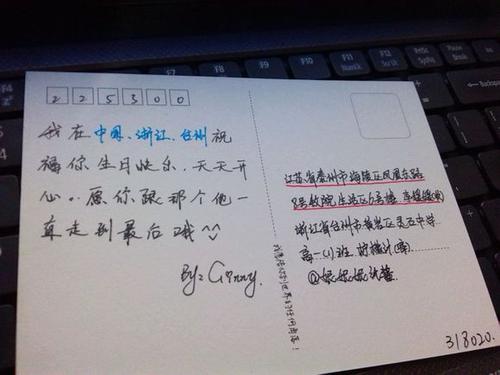 225300
我在中国、浙江、台州祝
福你生日快乐、天天开
心。愿你跟那个他一
直走到最后哦^^
By: Ginny.
江苏省泰州市海陵区凤凰东路
8号教院生活区6号楼
浙江省台州市黄岩区灵石中学
高一(1)班
318020.